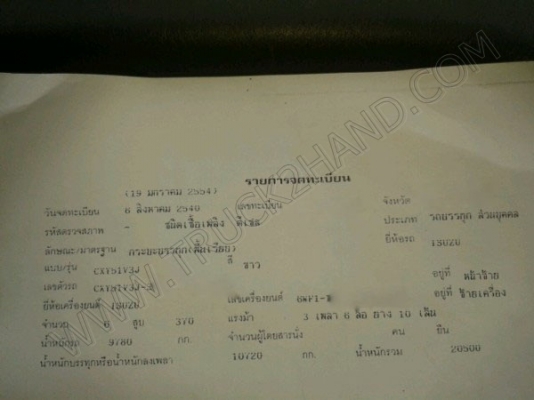 WWW.TRUCK2HAND.COM
รายการจดทะเบียน
(19 มกราคม 2554)
วันจดทะเบียน 6 สิงหาคม 2540 เลขทะเบียน จังหวัด
รหัสตรวจสภาพ - ชนิดเชื้อเพลิง ดีเซล ประเภท รถบรรทุก ส่วนบุคคล
ลักษณะ/มาตรฐาน กระบะบรรทุก ยี่ห้อรถ ISUZU
แบบ/รุ่น สี ขาว
เลขตัวรถ อยู่ที่ หน้าซ้าย
ยี่ห้อเครื่องยนต์ ISUZU เลขเครื่องยนต์ อยู่ที่ ซ้ายเครื่อง
จำนวน 6 สูบ 370 แรงม้า 3 เพลา 6 ล้อ ยาง 10 เส้น
น้ำหนักรถ 9780 กก. จำนวนผู้โดยสารนั่ง คน ยืน
น้ำหนักบรรทุกหรือน้ำหนักลงเพลา 10720 กก. น้ำหนักรวม 20500